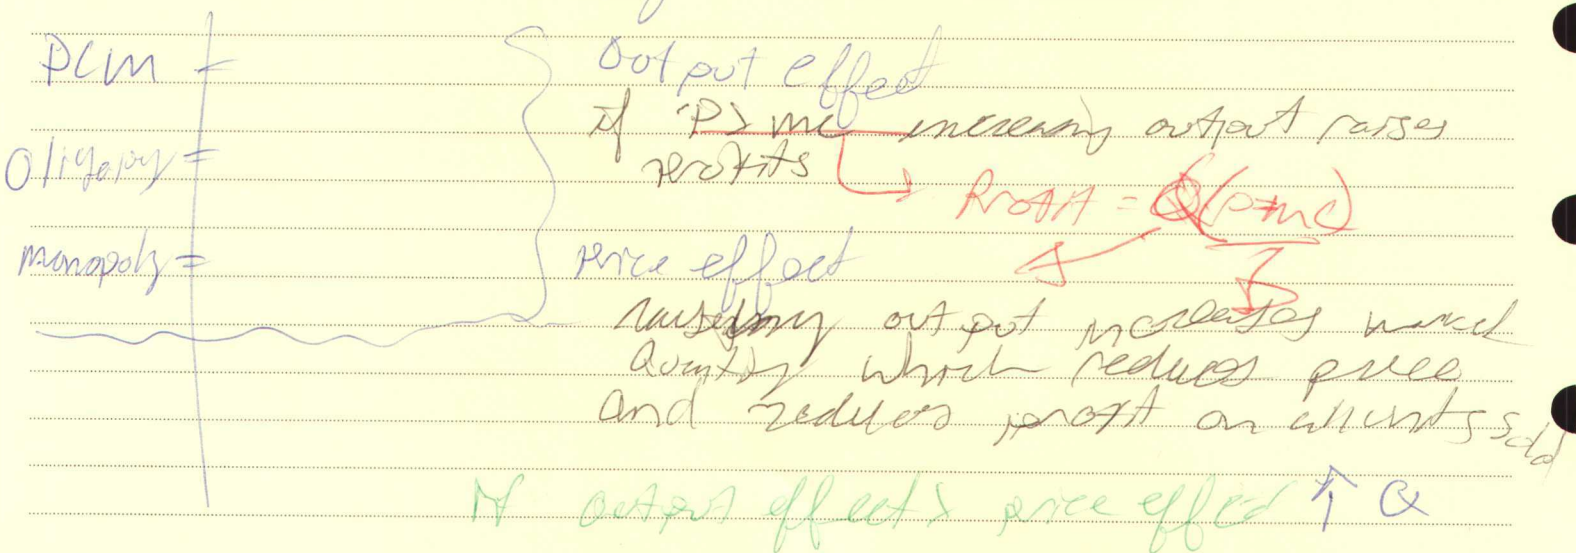 PCM -
Oligopoly =
monopoly =
Output effect
if P > mc increasing output raises
profits
Profit = Q(P-mc)
Price effect
output increases market
Quantity which reduces price
and reduces profit on all units sold
If output effect > price effect ↑ Q